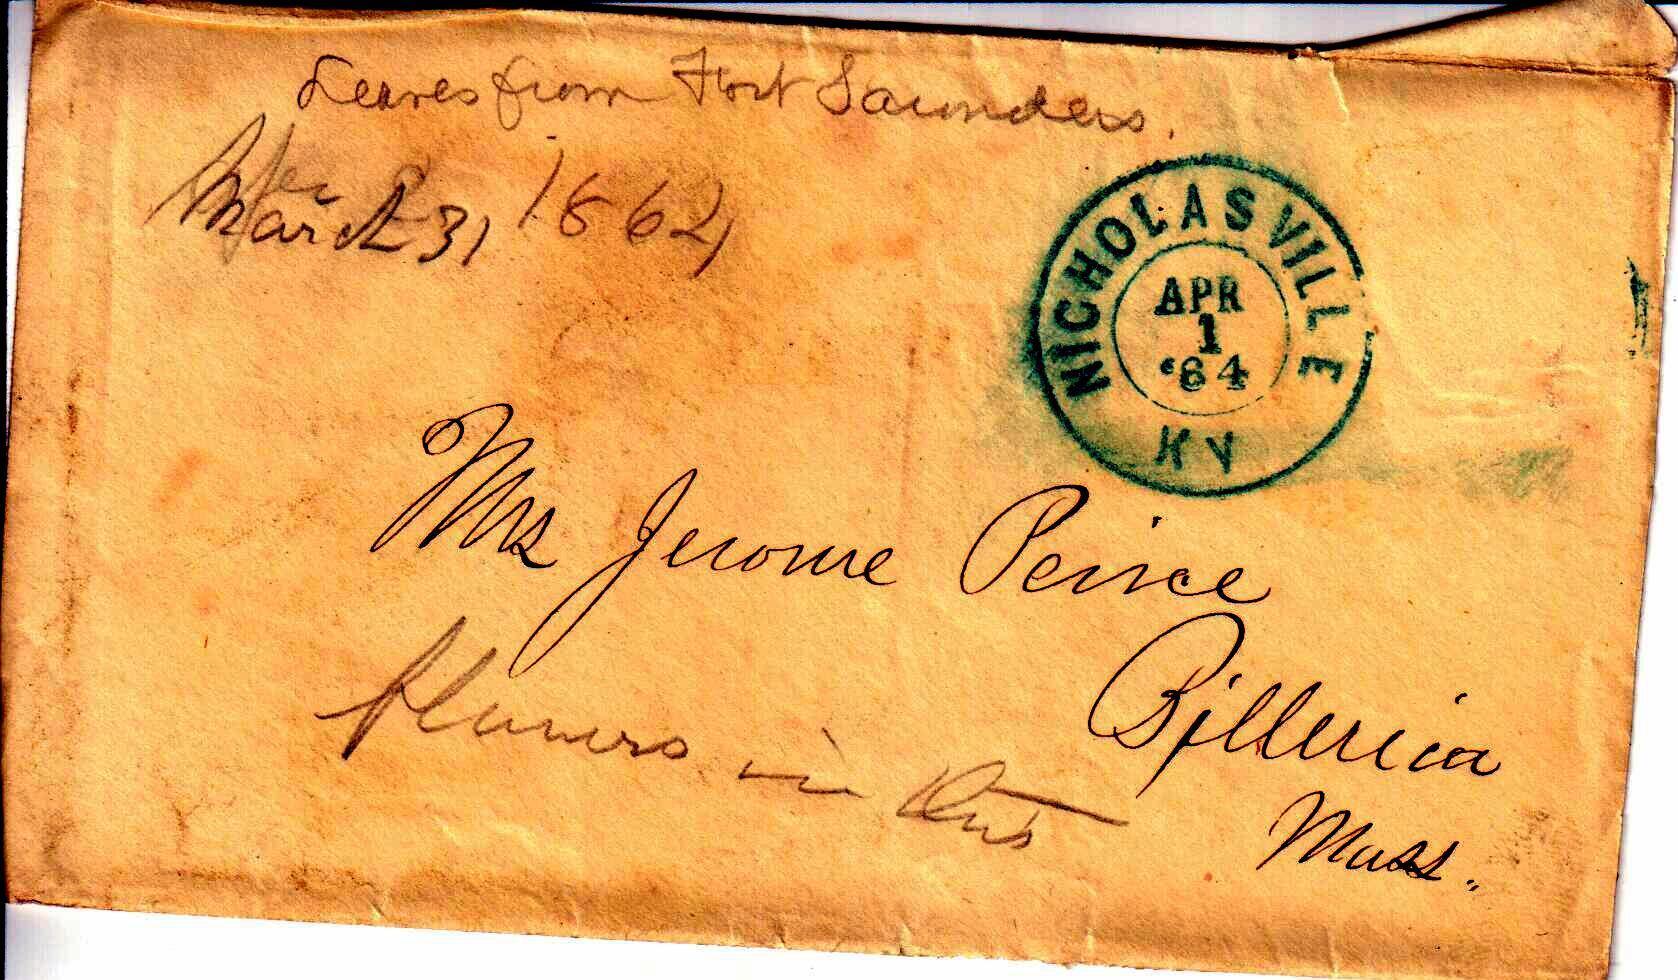 Leaves from Fort Saunders.
March 31 1864
NICHOLASVILLE
APR
1
'64
KY
Mrs Jerome Peirce
Billerica
Mass.
flowers in this